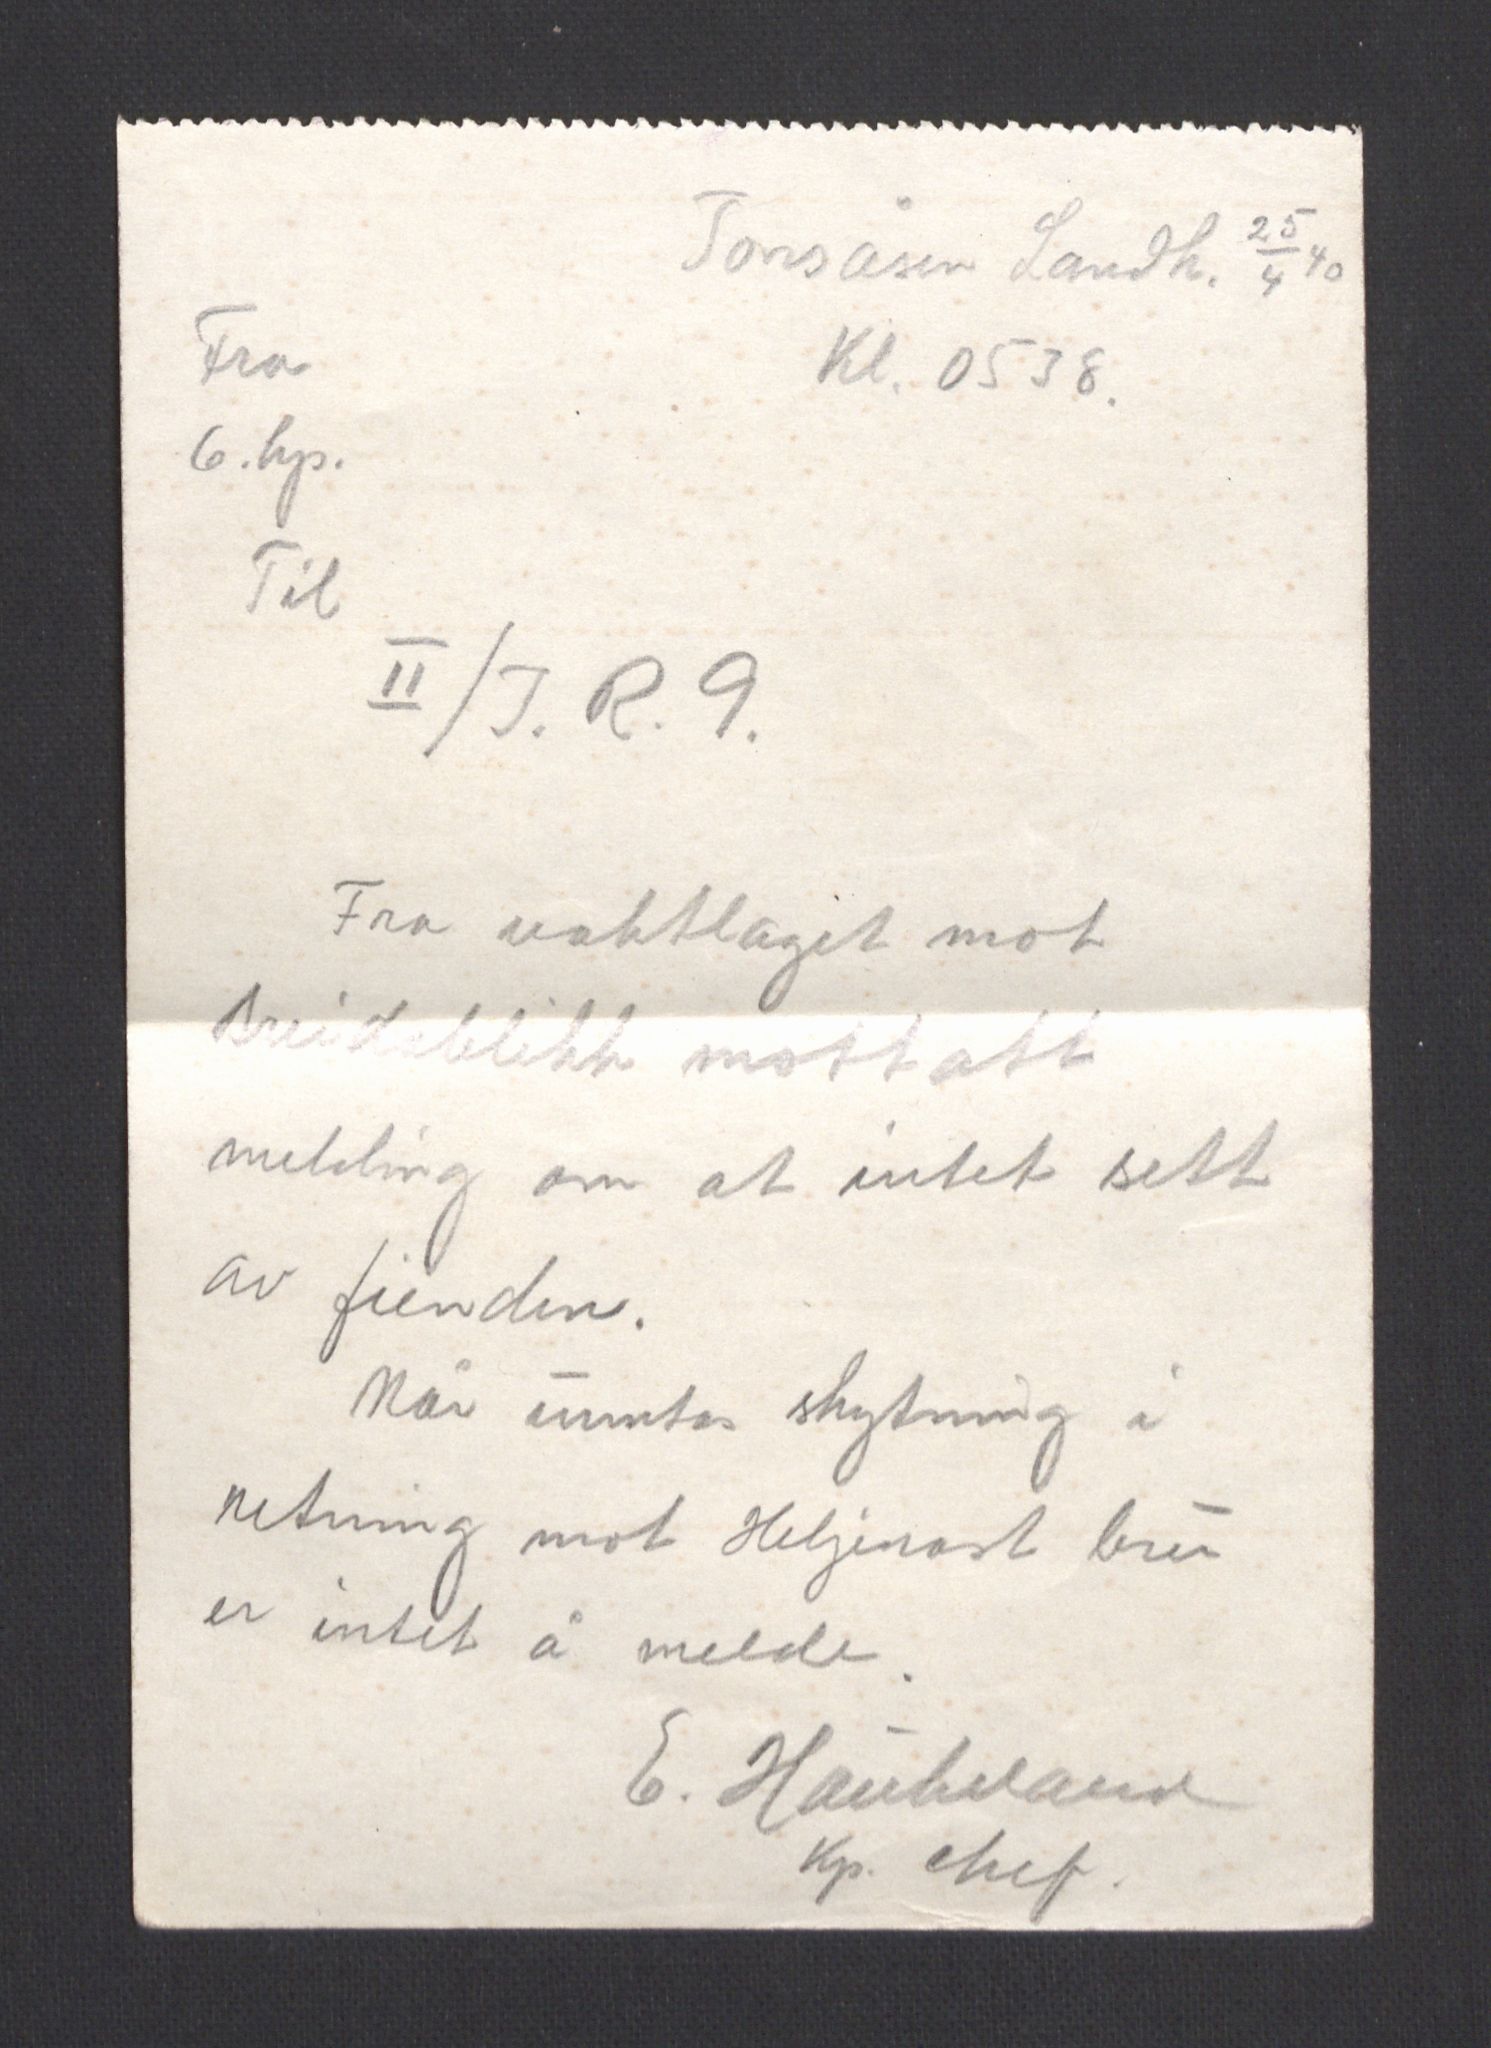 Tonsåsen Landh. 25/4 40
Kl. 0538.
Fra
6. kp.
Til
II/I.R.9.
Fra vaktlaget mot
Breidablikk mottatt
melding om at intet sett
av fienden.
Når unntas skytning i
retning mot Heljerast bru
er intet å melde.
E. Haukeland
Kp. chef.